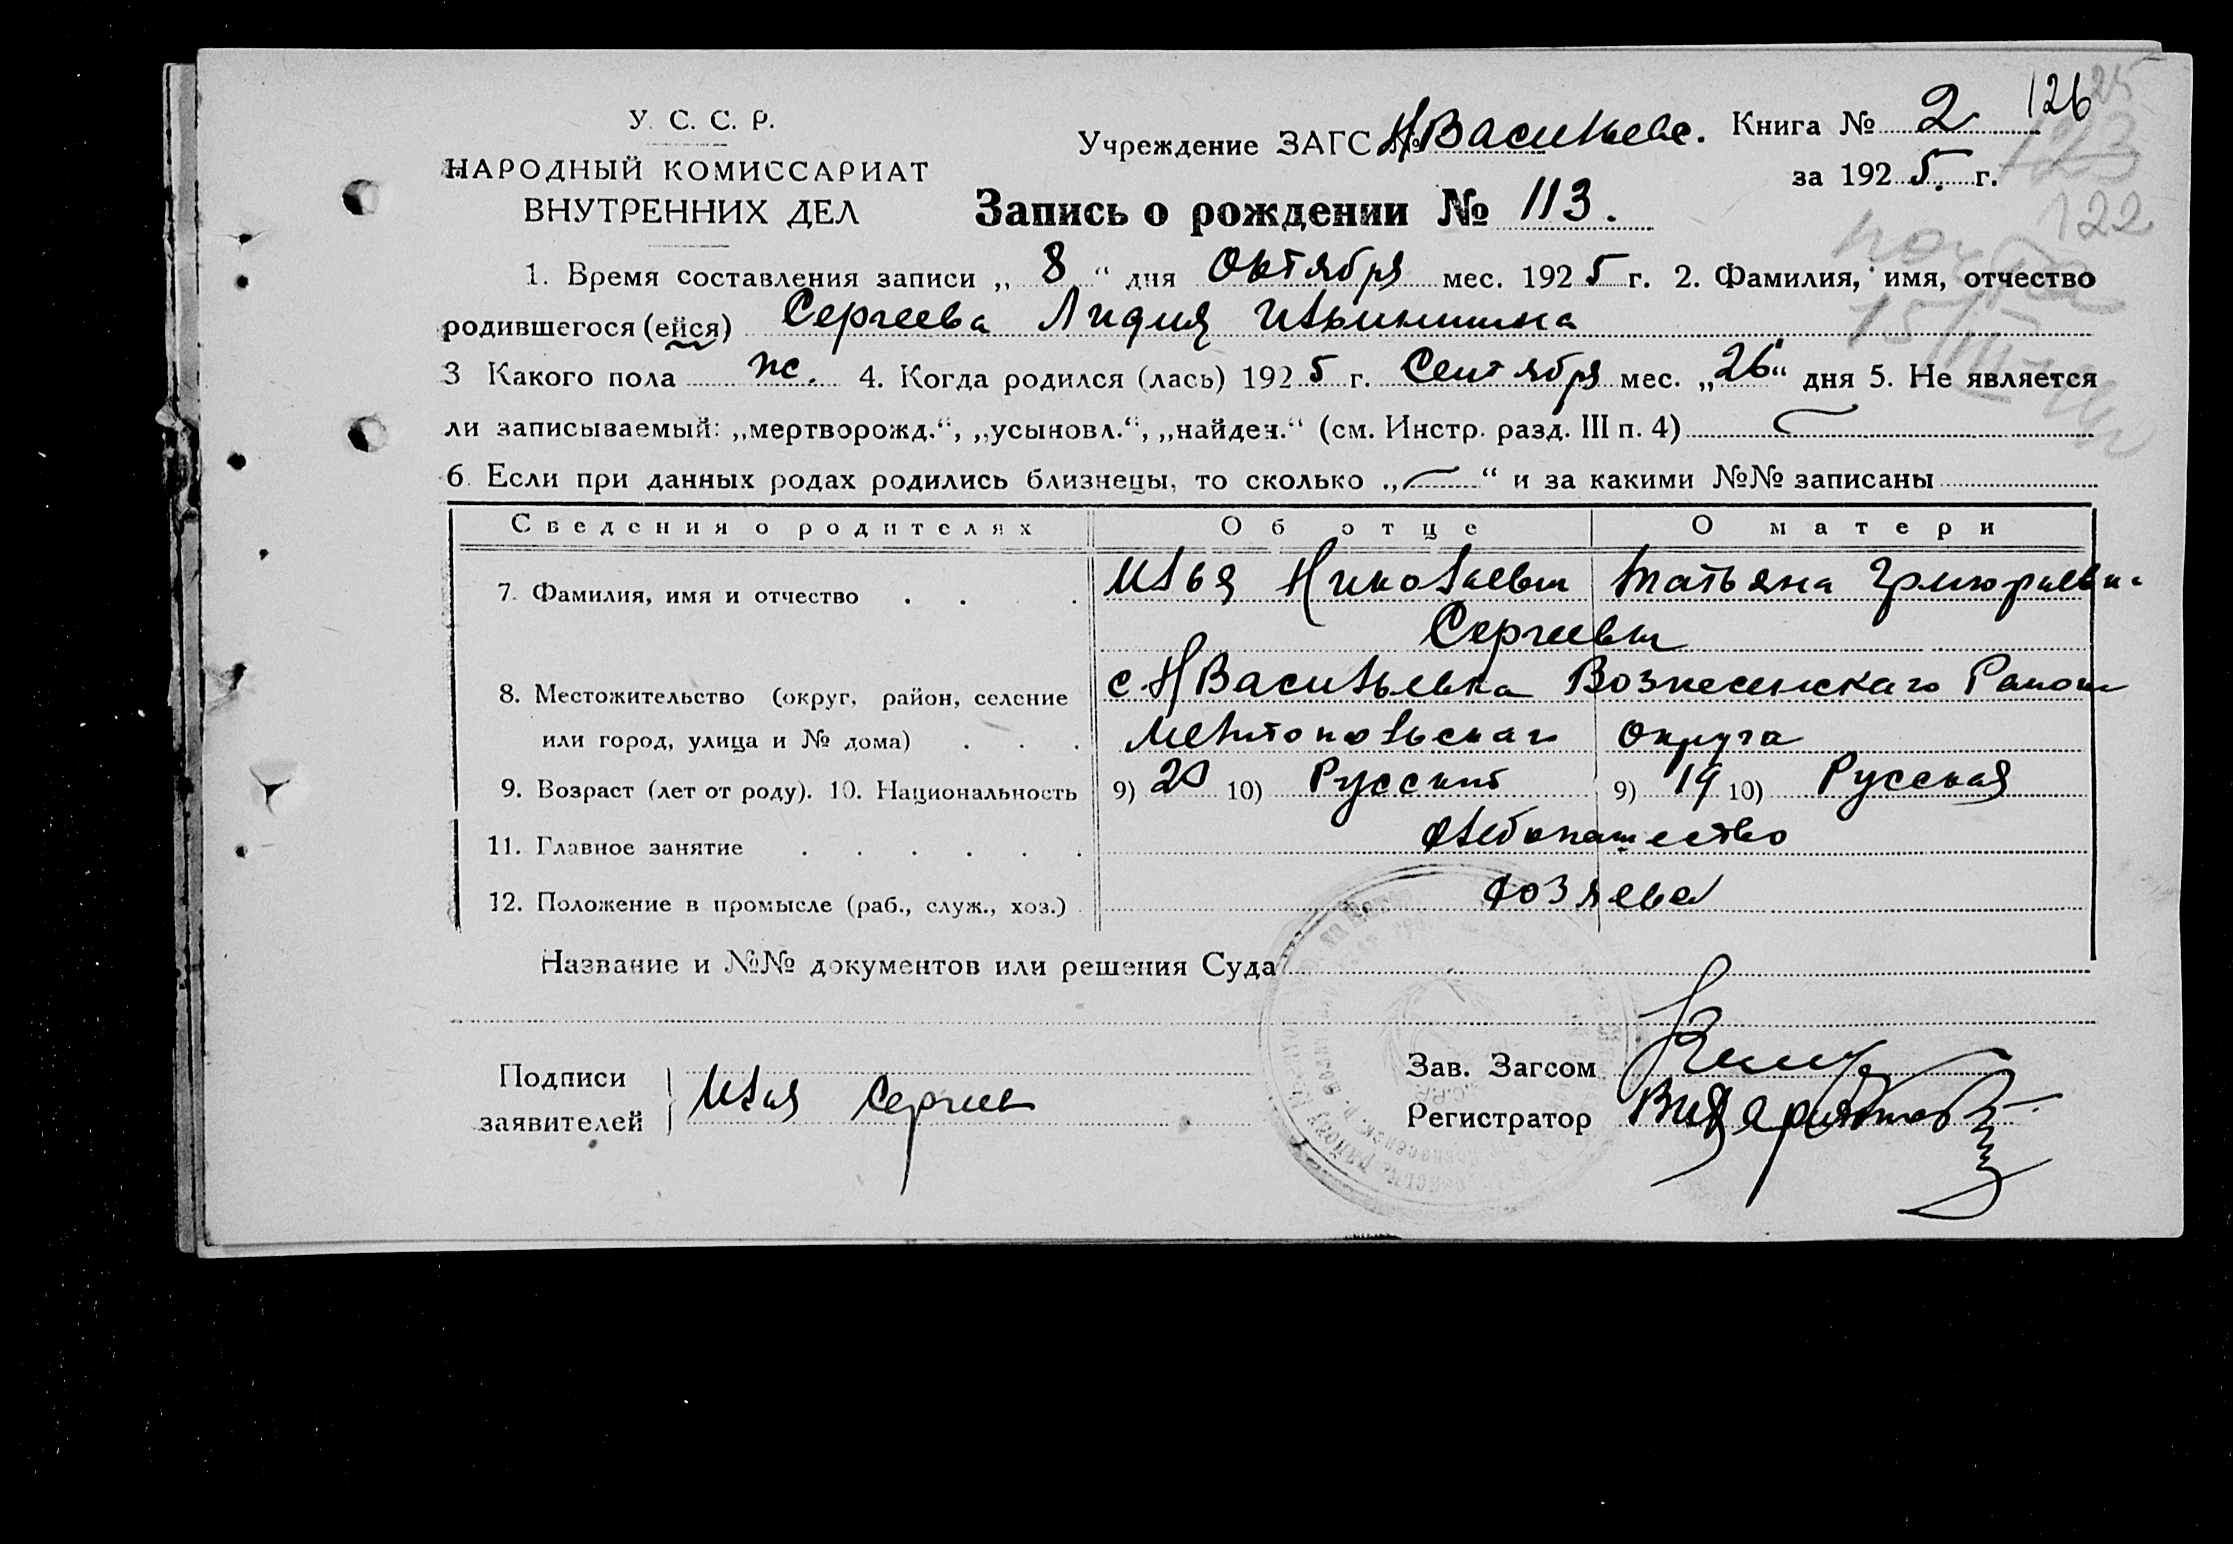 126
25
У. С. С. Р.
НАРОДНЫЙ КОМИССАРИАТ
ВНУТРЕННИХ ДЕЛ
Учреждение ЗАГС № НВасильевс. Книга № 2
123
за 1925. г.
Запись о рождении № 113.
122
почта
1. Время составления записи „ 8 “ дня Октября мес. 1925 г. 2. Фамилия, имя, отчество
родившегося (ейся) Сергеева Лидия Ильинишна
3 Какого пола ж. 4. Когда родился (лась) 1925 г. Сентября мес. „26“ дня 5. Не является
ли записываемый: „мертворожд.“, „усыновл.“, „найден.“ (см. Инстр. разд. III п. 4)
6. Если при данных родах родились близнецы, то сколько „ — “ и за какими №№ записаны
Сведения о родителях Об отце О матери
7. Фамилия, имя и отчество . . . . Илья Николаевы Татьяна Григорьевн.
Сергеевы
8. Местожительство (округ, район, селение с. НВасильевка Вознесенскаго Района
или город, улица и № дома) . . . Мелитопольскаго Округа
9. Возраст (лет от роду). 10. Национальность 9) 20 10) Русский 9) 19 10) Русская
11. Главное занятие . . . . . . хлебопашество
12. Положение в промысле (раб., служ., хоз.) хозяева
Название и №№ документов или решения Суда
Подписи
заявителей } Илья Сергеев
Зав. Загсом
Регистратор